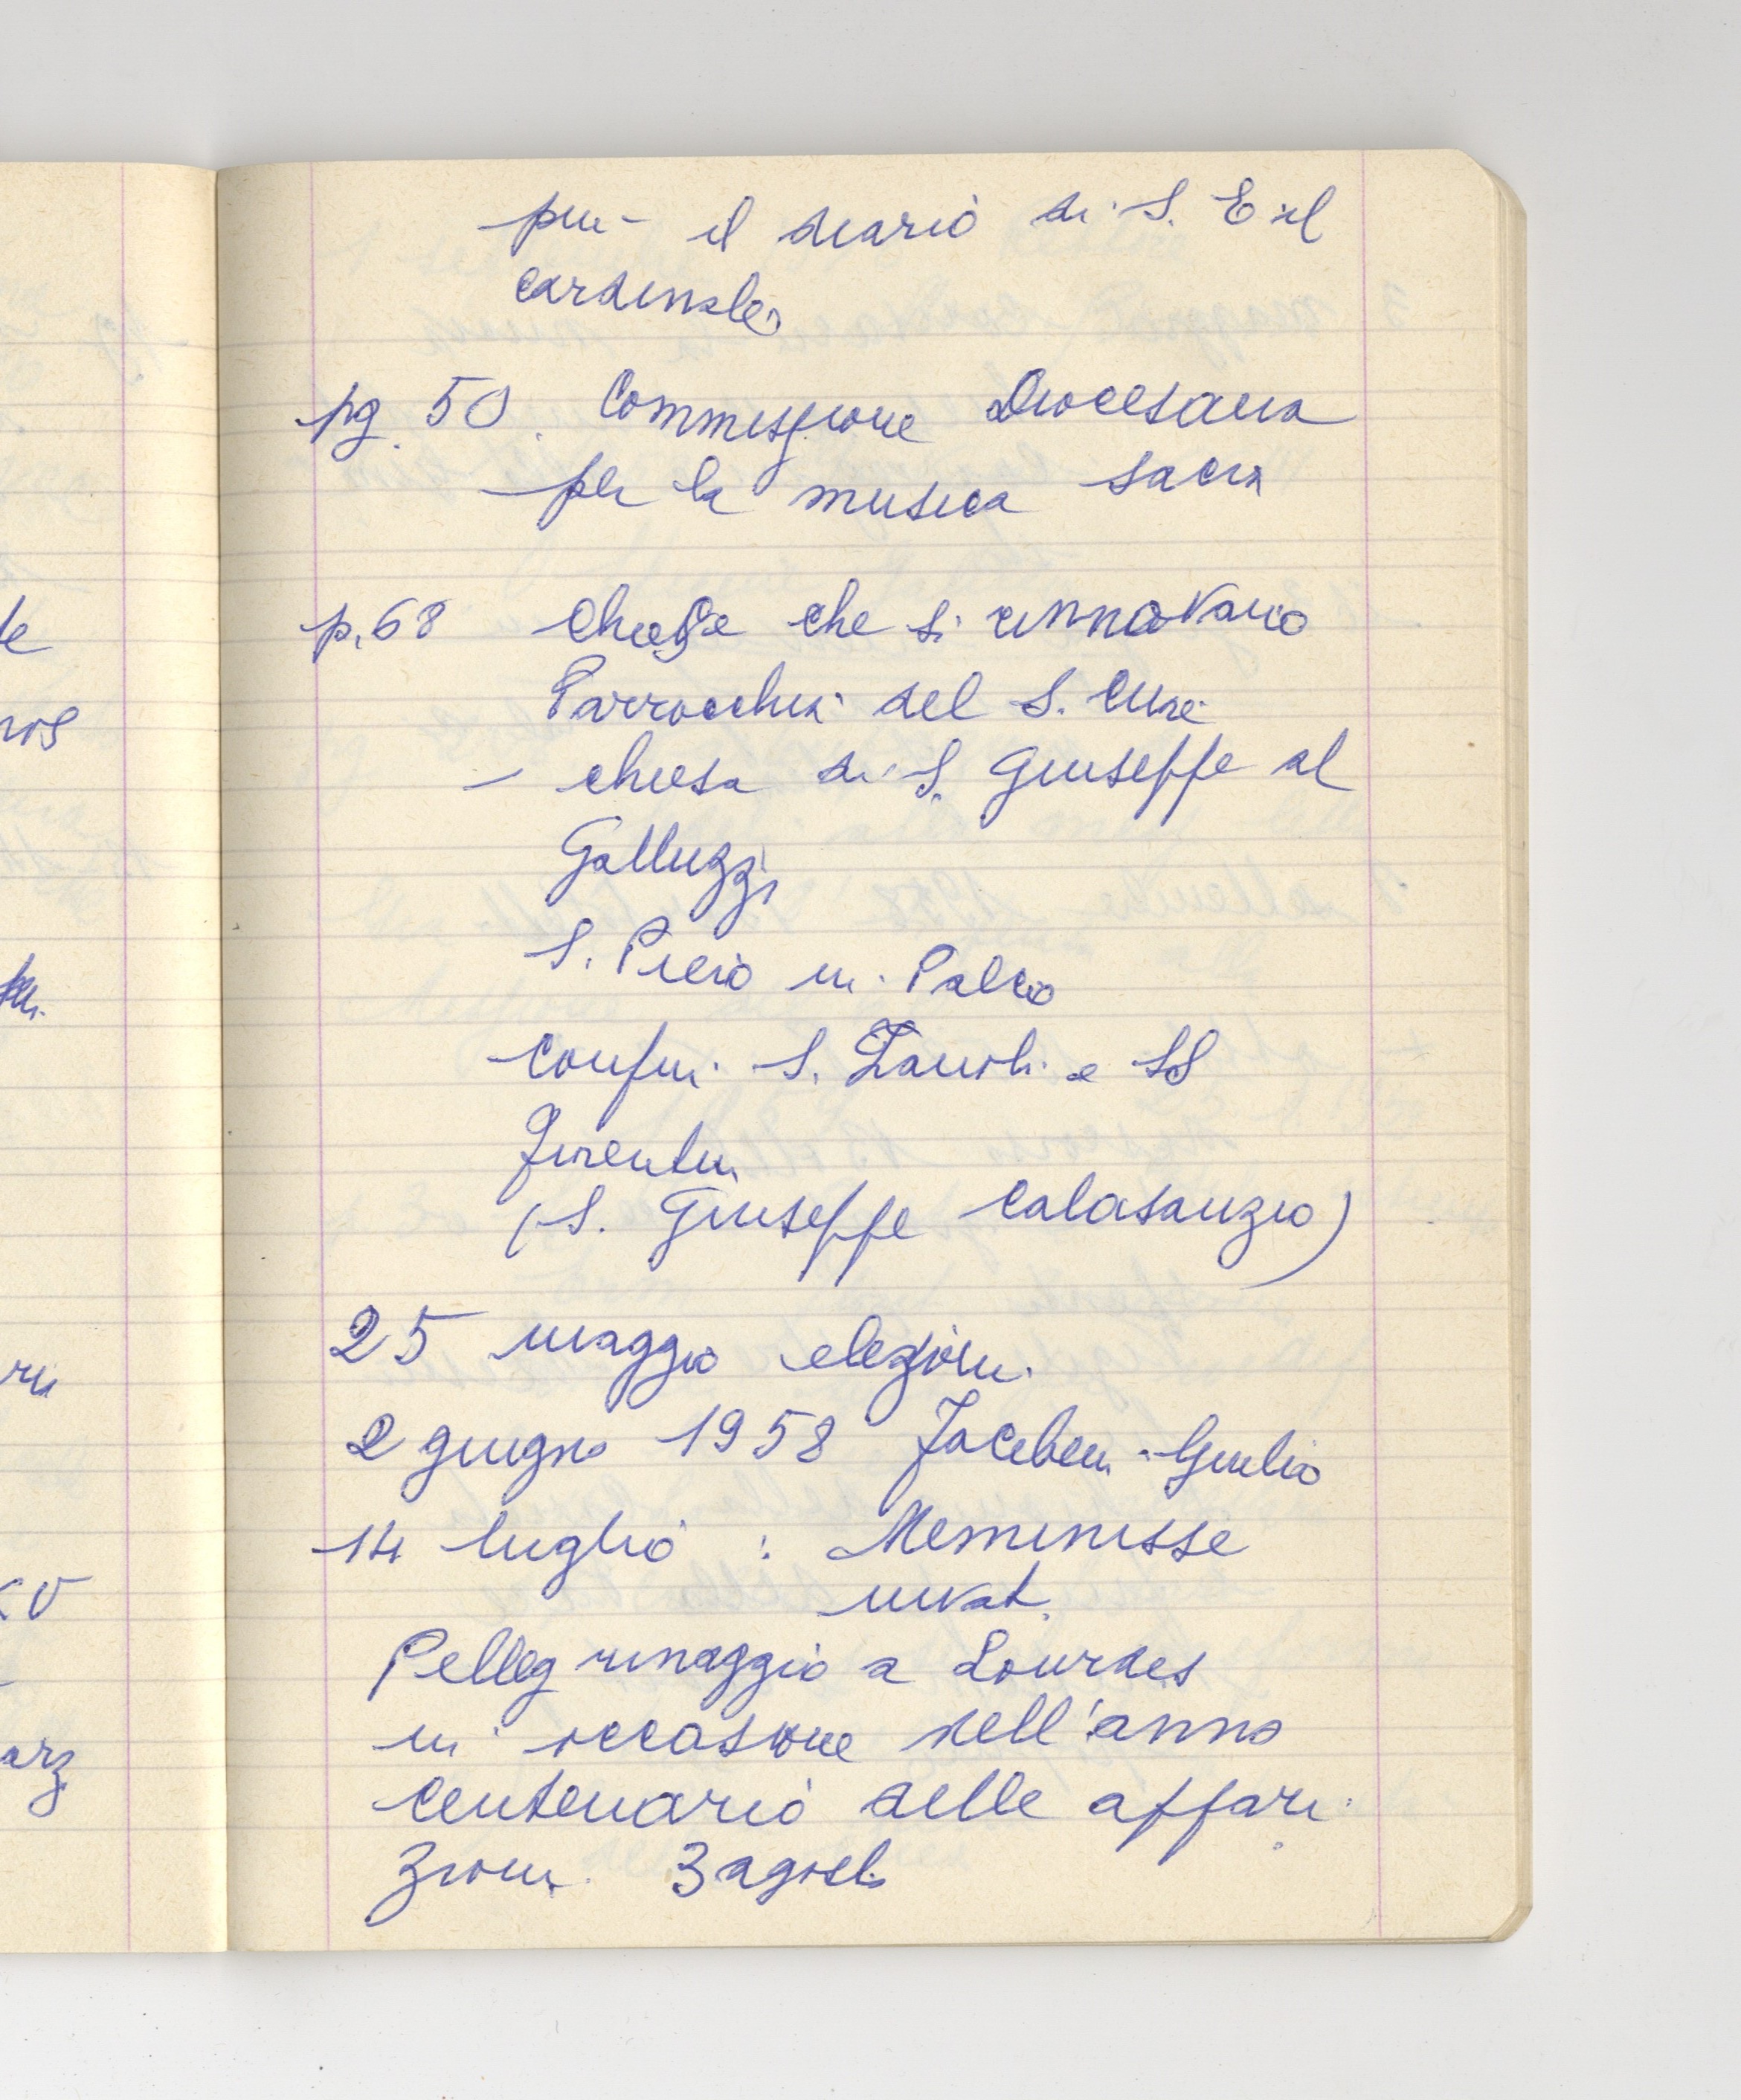 più - il diario di S. E il
cardinale
pg. 50. Commissione Diocesana
per la musica sacra
p. 68 Chiese che si rinnovano
Parrocchia del S. Cuore
- chiesa di S. Giuseppe al
Galluzzi
S. Piero in Palco
confini S. Zanobi e SS
Fiorentini
(S. Giuseppe Calasanzio)
25 maggio elezioni
2 giugno 1958 Facibeni - Giulio
14 luglio : Meminisse
iuvat.
Pellegrinaggio a Lourdes
in occasione dell'anno
centenario delle appari
zioni. 3 agosto